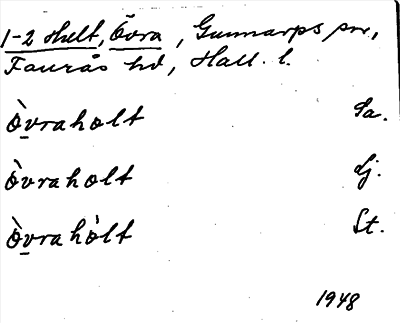 1-2 Hult, Övra, Gunnarps sn,
Faurås hd, Hall. l.
Òvraholt Sa.
Òvraholt Lj.
Òvrahòlt St.
1948